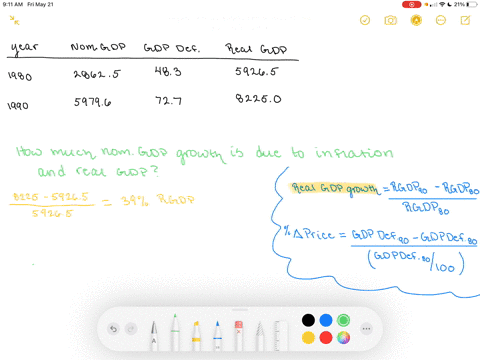 9:11 AM Fri May 21
21%
year Nom GDP GDP Def. Real GDP
1980 2862.5 48.3 5926.5
1990 5979.6 72.7 8225.0
How much nom. GDP growth is due to inflation
and real GDP?
8225 - 5926.5 / 5926.5 = 39% RGDP
Real GDP growth = RGDP90 - RGDP80 / RGDP80
% Δ Price = GDP Def.90 - GDP Def.80 / (GDP Def.80/100)